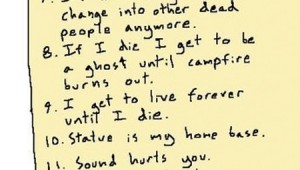 change into other dead
people anymore.
8. If I die I get to be
a ghost until campfire
burns out.
9. I get to live forever
until I die.
10. Statue is my home base.
11. Sound hurts you.